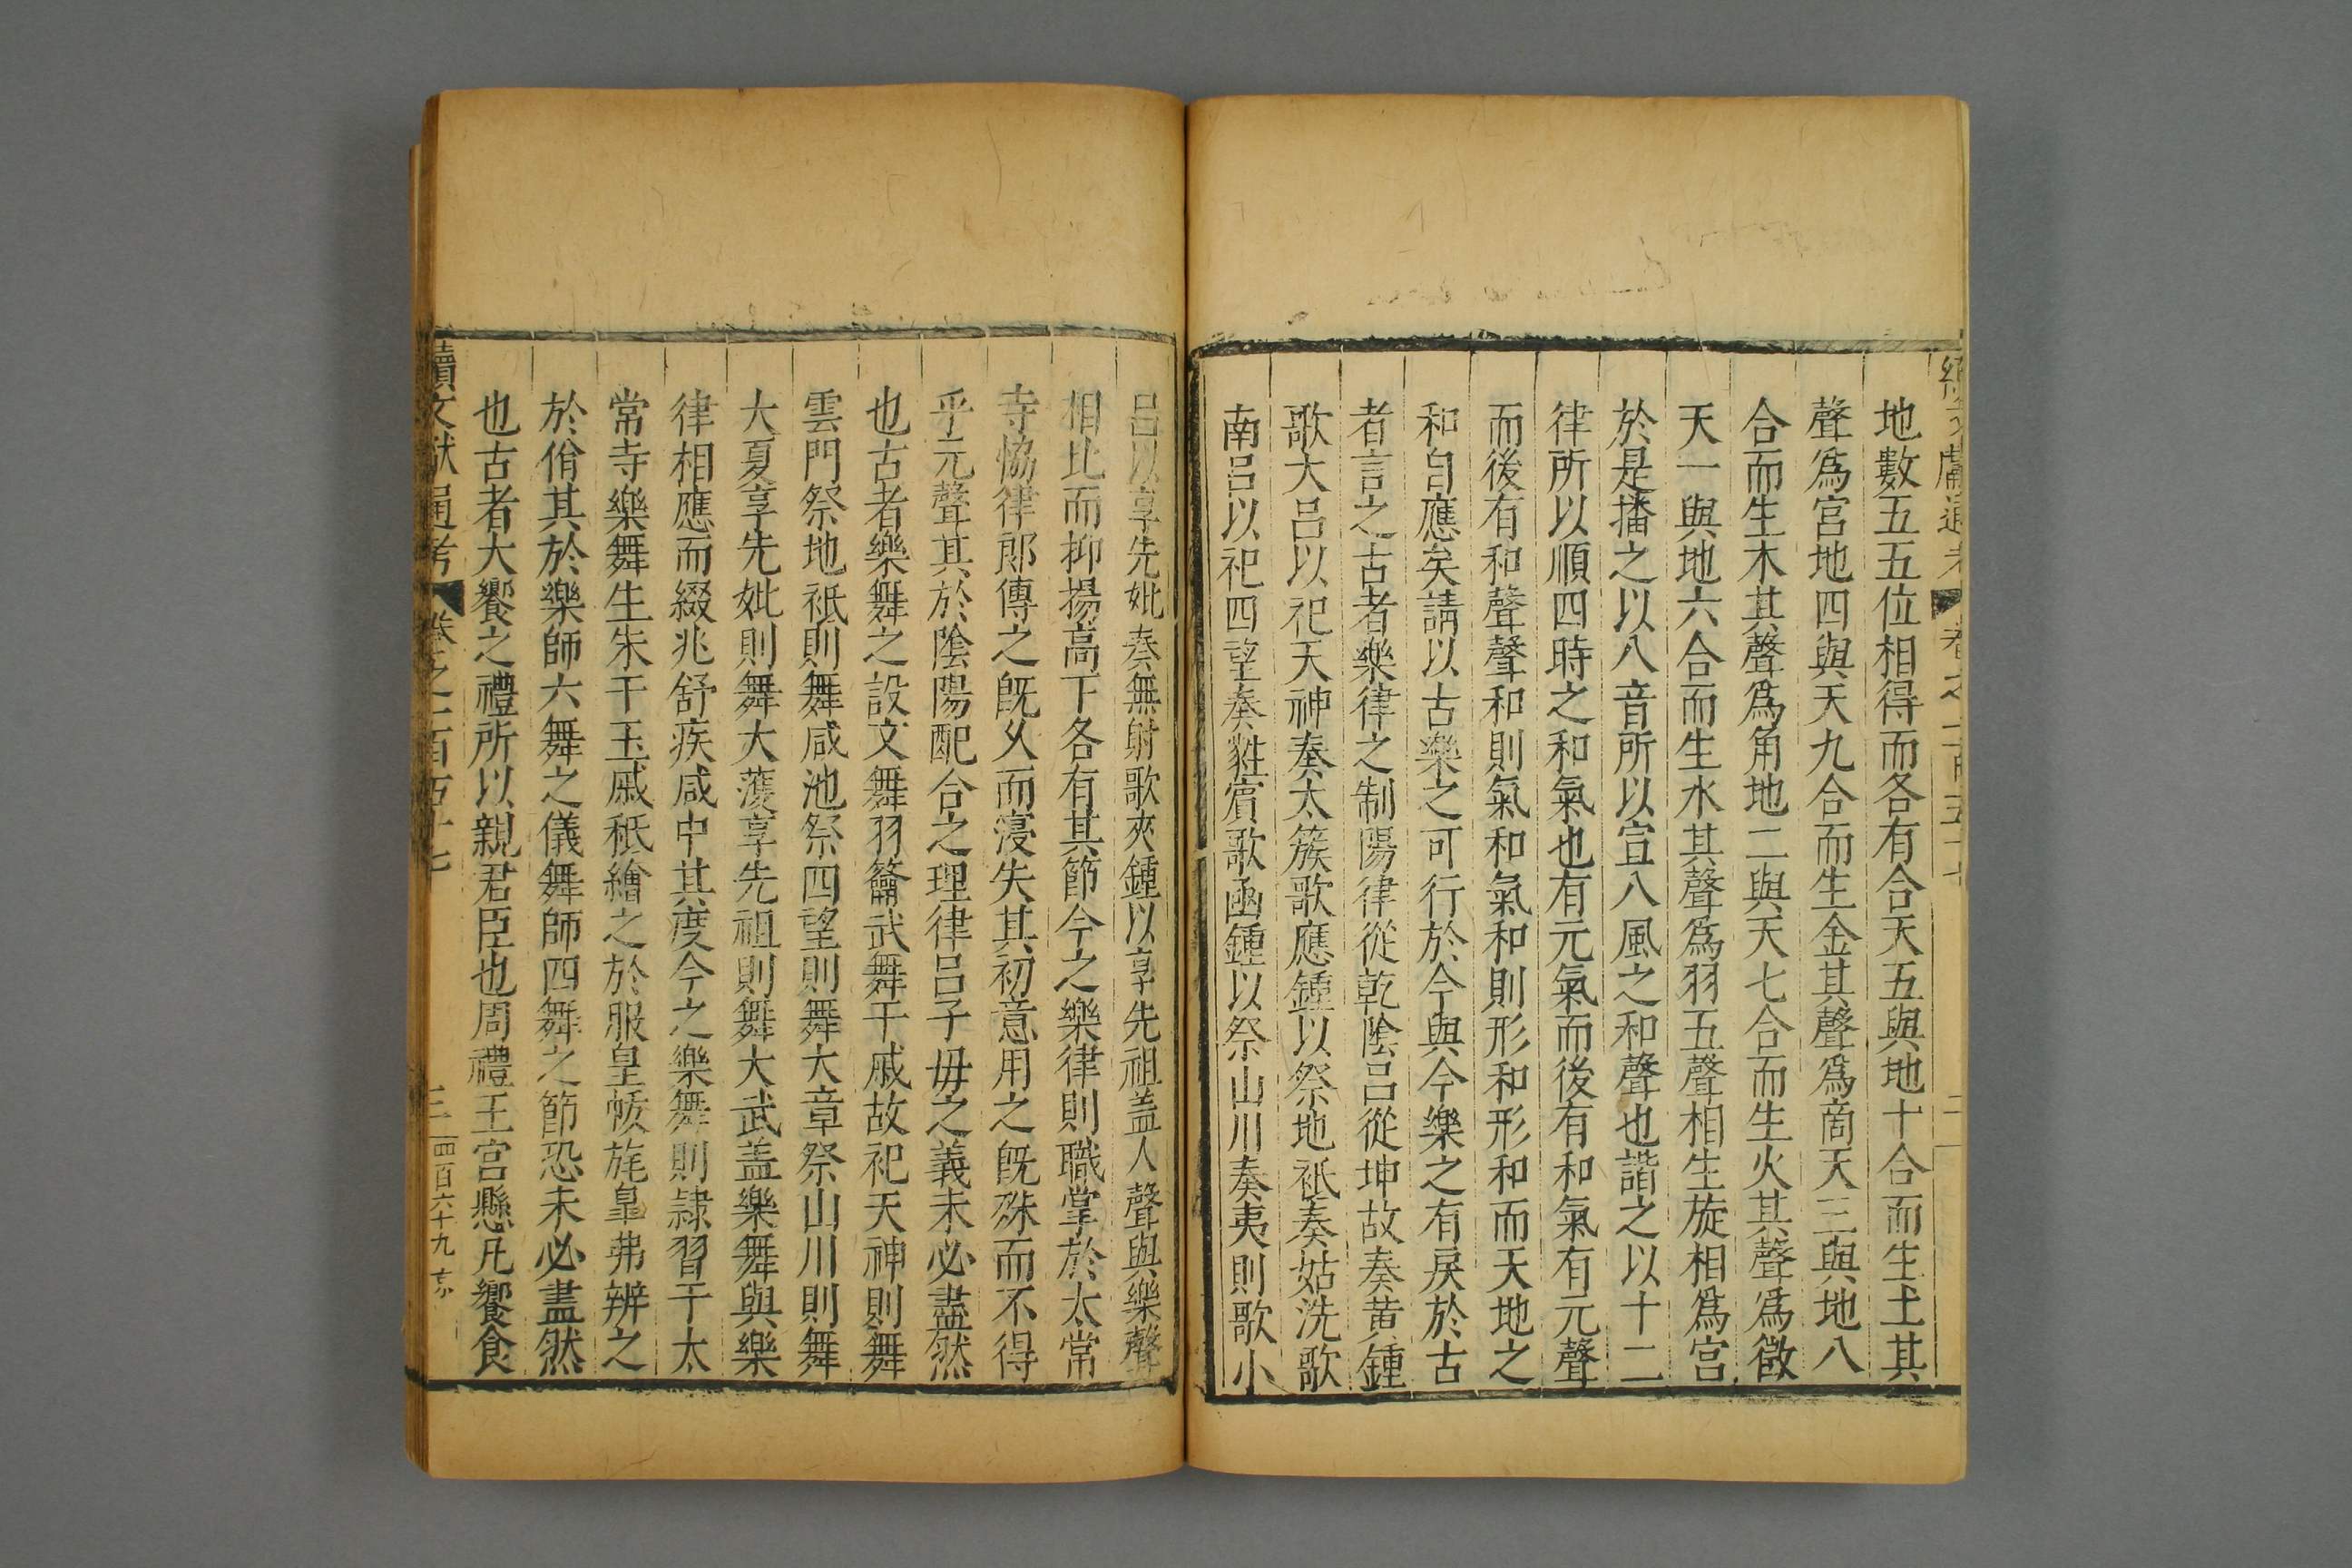 地數五五位相得而各有合天五與地十合而生土其
聲爲宮地四與天九合而生金其聲爲商天三與地八
合而生木其聲爲角地二與天七合而生火其聲爲徵
天一與地六合而生水其聲爲羽五聲相生旋相爲宮
於是播之以八音所以宣八風之和聲也諧之以十二
律所以順四時之和氣也有元氣而後有和氣有元聲
而後有和聲聲和則氣和氣和則形和形和而天地之
和自應矣請以古樂之可行於今與今樂之有戾於古
者言之古者樂律之制陽律從乾陰呂從坤故奏黄鍾
歌大呂以祀天神奏太簇歌應鍾以祭地祇奏姑洗歌
南呂以祀四望奏蕤賓歌函鍾以祭山川奏夷則歌小
呂以享先妣奏無射歌夾鍾以享先祖盖人聲與樂聲
相比而抑揚高下各有其節今之樂律則職掌於太常
寺恊律郎傳之旣乆而寖失其初意用之旣殊而不得
乎元聲其於陰陽配合之理律呂子毋之義未必盡然
也古者樂舞之設文舞羽籥武舞干戚故祀天神則舞
雲門祭地祇則舞咸池祭四望則舞大章祭山川則舞
大夏享先妣則舞大濩享先祖則舞大武盖樂舞與樂
律相應而綴兆舒疾咸中其度今之樂舞則隷習于太
常寺樂舞生朱干玉戚秪繪之於服皇帗旄皐弗辨之
於佾其於樂師六舞之儀舞師四舞之節恐未必盡然
也古者大饗之禮所以親君臣也周禮王宮懸凡饗食
續文献通考 卷之一百五十七 三 四百六十九